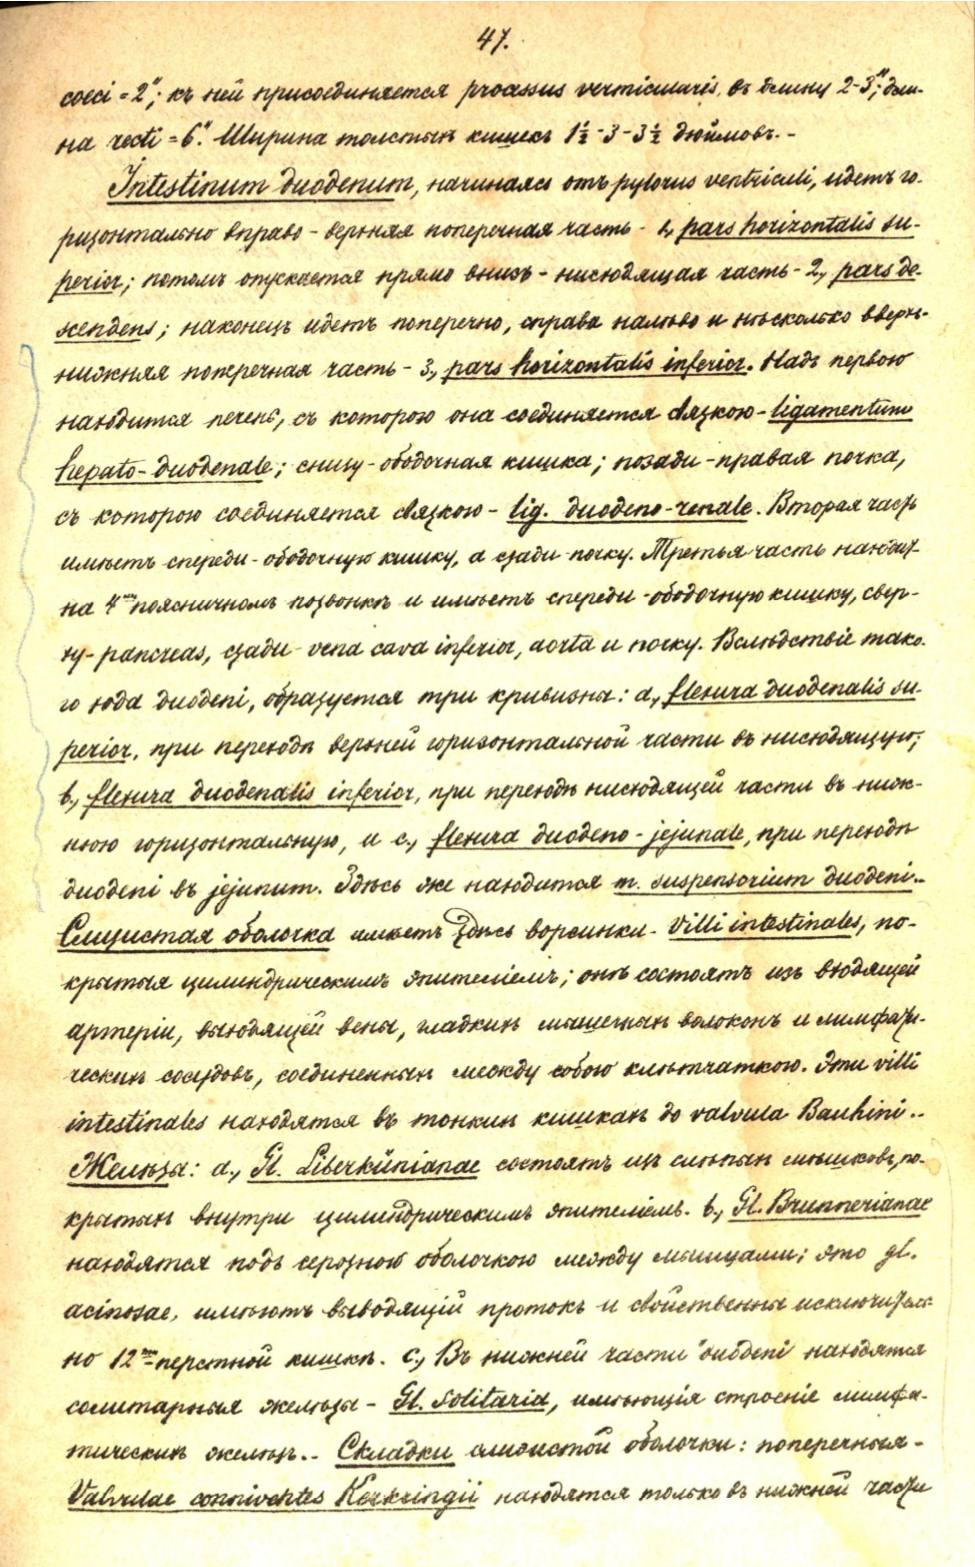 47.
coeci = 2"; къ ней присоединяется processus vermicularis, въ длину 2-3"; дли-
на recti = 6". Ширина толстыхъ кишекъ 1½ - 3 - 3½ дюймовъ. -
Intestinum duodenum, начинаясь отъ pylorus ventriculi, идетъ го-
ризонтально вправо - верхняя поперечная часть - 1, pars horizontalis su-
perior; потомъ опускается прямо внизъ - нисходящая часть - 2, pars de-
scendens; наконецъ идетъ поперечно, справа налѣво и нѣсколько вверхъ -
нижняя поперечная часть - 3, pars horizontalis inferior. Надъ первою
находится печень, съ которою она соединяется связкою - ligamentum
hepato-duodenale; снизу - ободочная кишка; позади - правая почка,
съ которою соединяется связкою - lig. duodeno-renale. Вторая часть
имѣетъ спереди - ободочную кишку, а сзади почку. Третья часть находит.
на 4мъ поясничномъ позвонкѣ и имѣетъ спереди - ободочную кишку, свер-
ху - pancreas, сзади - vena cava inferior, aorta и почку. Вслѣдствіе тако-
го хода duodeni, образуется три кривизны: a, flexura duodenalis su-
perior, при переходѣ верхней горизонтальной части въ нисходящую;
b, flexura duodenalis inferior, при переходѣ нисходящей части въ ниж-
нюю горизонтальную, и c, flexura duodeno-jejunale, при переходѣ
duodeni въ jejunum. Здѣсь же находится m. suspensorium duodeni. -
Слизистая оболочка имѣетъ здѣсь ворсинки - Villi intestinales, по-
крытыя цилиндрическимъ эпителіемъ; онѣ состоятъ изъ входящей
артеріи, выходящей вены, гладкихъ мышечныхъ волоконъ и лимфати-
ческихъ сосудовъ, соединенныхъ между собою клѣтчаткою. Эти villi
intestinales находятся въ тонкихъ кишкахъ до valvula Bauhini. -
Желѣзы: a, Gl. Liberkünianae состоятъ изъ слѣпыхъ мѣшковъ, по-
крытыхъ внутри цилиндрическимъ эпителіемъ. b, Gl. Brunnerianae
находятся подъ серозною оболочкою между мышцами; это gl.
acinosae, имѣютъ выводящій протокъ и свойственны исключитель-
но 12ти-перстной кишкѣ. c, Въ нижней части duodeni находятся
солитарныя желѣзы - Gl. Solitaria, имѣющія строеніе лимфа-
тическихъ желѣзъ. - Складки слизистой оболочки: поперечныя -
Valvulae conniventes Kerkringii находятся только въ нижней части